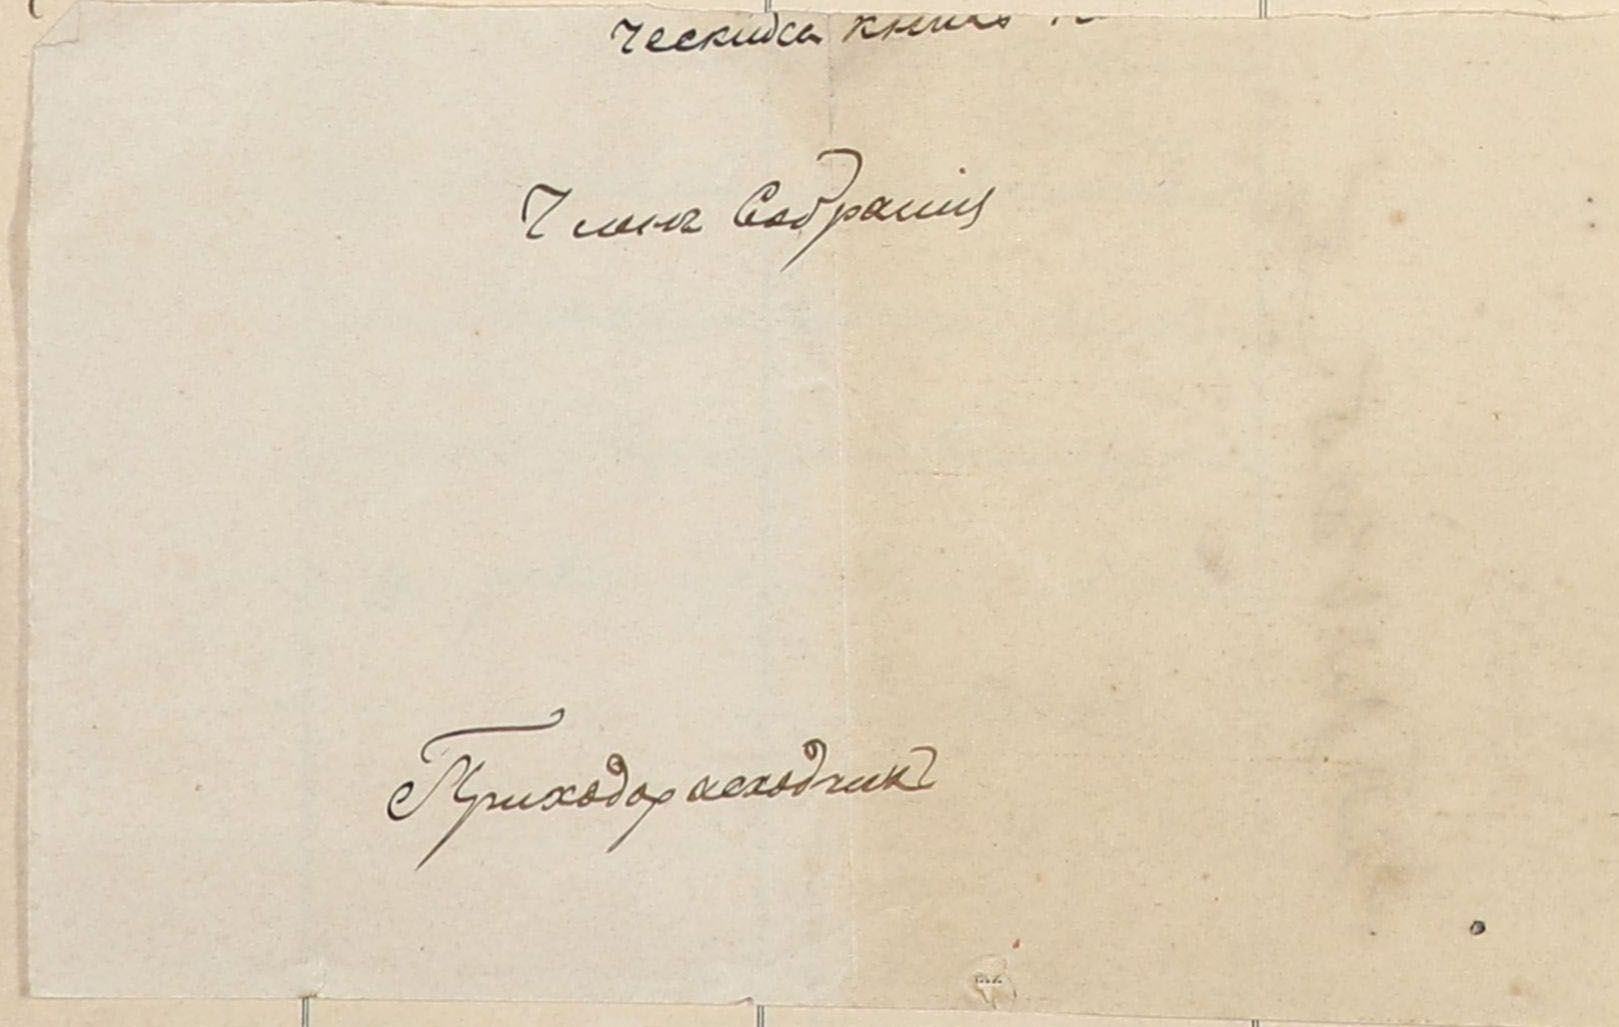 ческихъ книгъ
Членъ Собранія
Приходорасходчикъ